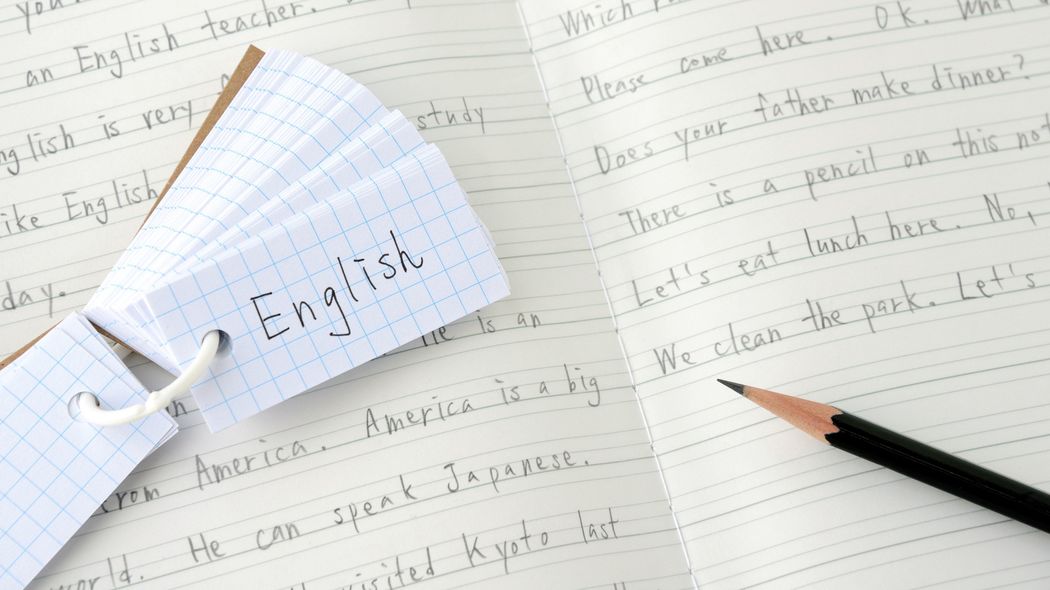 an English teacher.
is very
study
like English
day.
English
is an
from America. America is a big
world. He can speak Japanese.
visited Kyoto last
Which
Please come here. OK. What
Does your father make dinner?
There is a pencil on this
Let's eat lunch here. No,
We clean the park. Let's